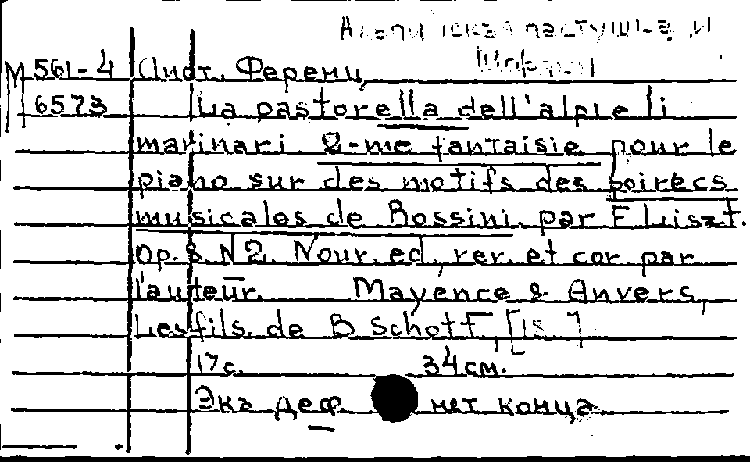 пастушка и
М 561-4 Лист, Ференц
6573 La pastorella dell'alpi e li
marinari. 2-me fantaisie pour le
piano sur des motifs des soirees
musicales de Rossini par F. Liszt.
Op. 8 N 2. Nouv. ed., rev. et cor. par
l'auteur. Mayence & Anvers,
Les fils de B. Schott, [18 ]
17 с. 34 см.
Экз. деф. нет конца